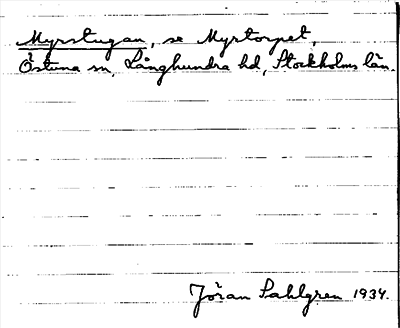 Myrstugan, se Myrtorpet,
Östuna sn, Långhundra hd, Stockholms län.
Jöran Sahlgren 1934.